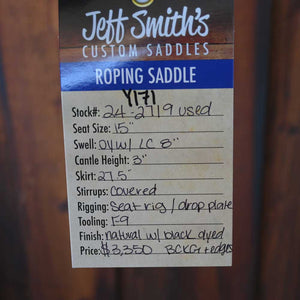 Jeff Smith's
CUSTOM SADDLES
ROPING SADDLE
Y171
Stock#: 24-2719 used
Seat Size: 15"
Swell: OY w/ LC 8"
Cantle Height: 3"
Skirt: 27.5"
Stirrups: Covered
Rigging: Seat rig / drop plate
Tooling: F9
Finish: natural w/ black dyed
Price: $3,350 BCKG + edges